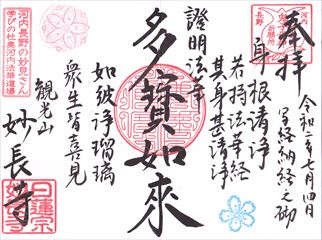 奉拝
令和二年七月四日
写経納経之砌
身根清浄
若持法華経
其身甚清浄
多寶如來
證明法華
如彼浄瑠璃
衆生皆喜見
観光山
妙長寺
河内長野の妙見さん
学びの杜奥河内法華道場
河内
長野
日蓮宗
妙長寺